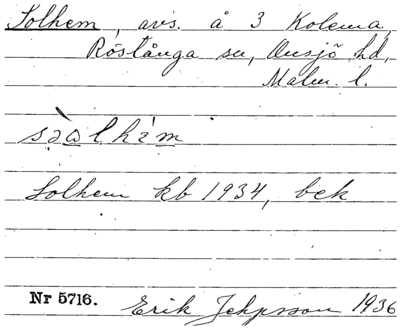 Solhem, avs. å 3 Kolema,
Röstånga sn, Onsjö hd,
Malm. l.
sòₐlhèm
Solhem kb 1934, bek
Nr 5716. Erik Jeppsson 1936